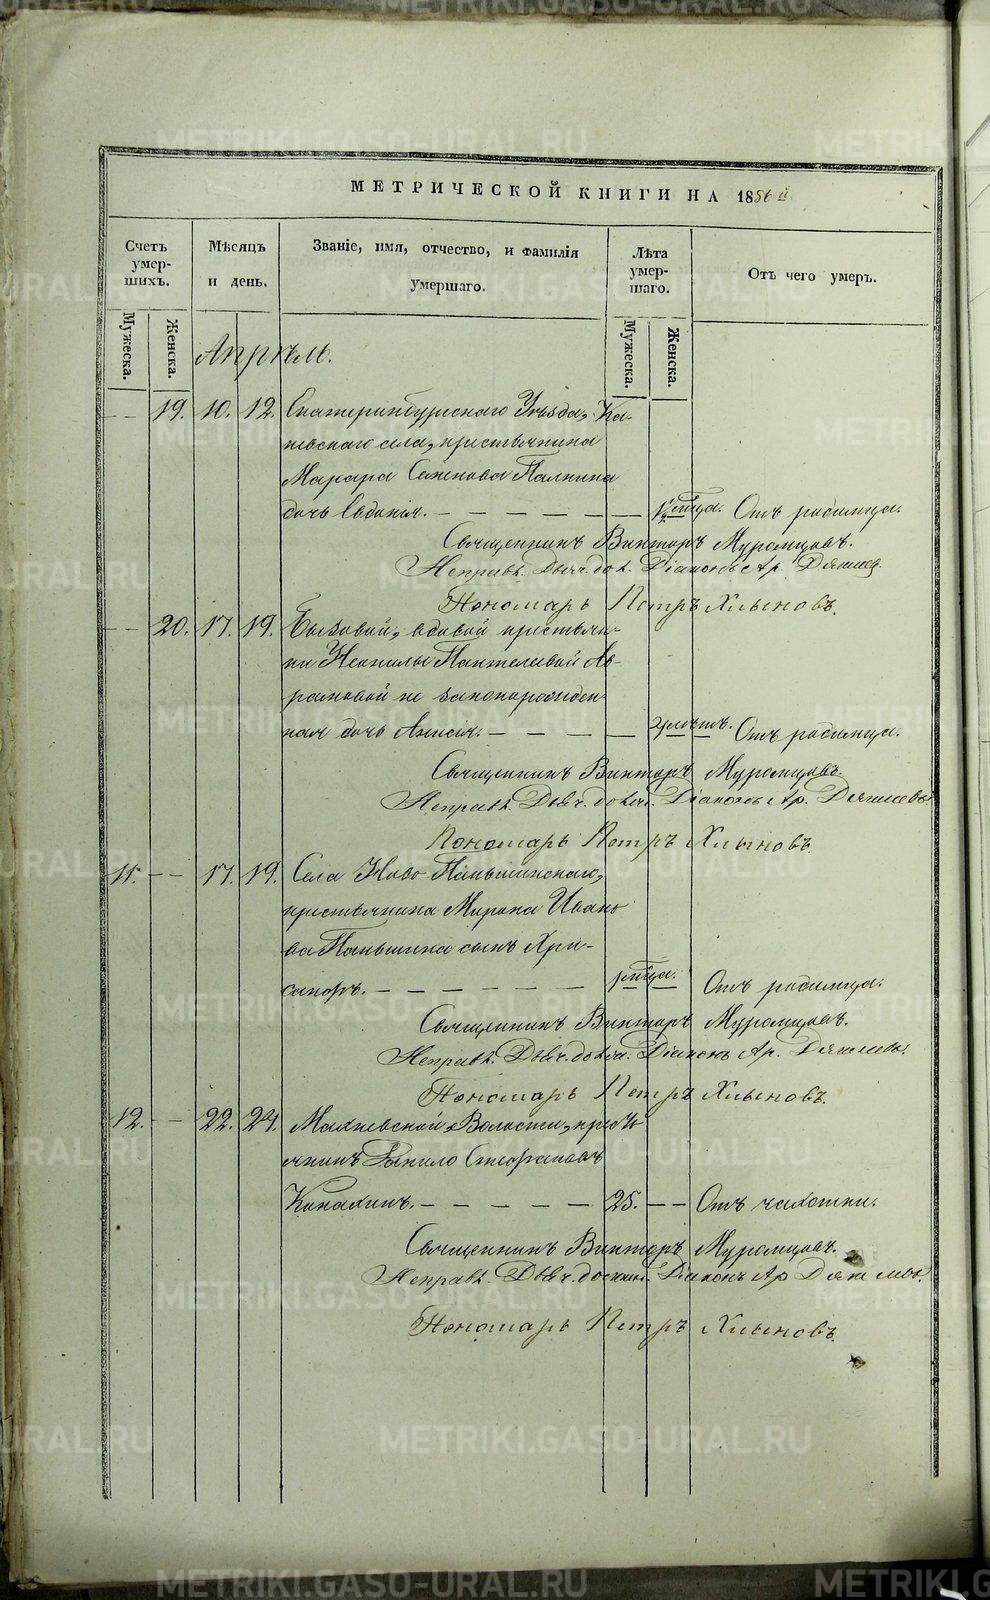 МЕТРИЧЕСКОЙ КНИГИ НА 1856й
Счетъ умерших. Мѣсяцъ и день. Званіе, имя, отчество, и фамилія умершаго. Лѣта умершаго. Отъ чего умеръ.
Мужеска. Женска. Мужеска. Женска.
Апрѣль.
19. 10. 12. Екатеринбургскаго Уѣзда, Ка-
невскаго села, крестьянина
Макара Семенова Палкина
дочь Евдокія. 1/2 мѣсяца. Отъ родимца.
Священникъ Викторъ Муромцовъ.
Исправл. Дьяч. дол. Діаконъ Ар.
Пономарь Петръ Хлыновъ.
20. 17. 19. вдовой крестьян-
ки Неонилы Пантелеевой Ав-
рамовой не законорожден-
ная дочь Анисія. 2 мѣсяц. Отъ родимца.
Священникъ Викторъ Муромцовъ.
Исправл. Дьяч. дол. Діаконъ Ар.
Пономарь Петръ Хлыновъ.
11. 17. 19. Села Ново Паньшинскаго,
крестьянина Мирона Ивано
ва Паньшина сынъ Хри-
санфъ. 1 мѣсяца. Отъ родимца.
Священникъ Викторъ Муромцовъ.
Исправл. Дьяч. дол. Діаконъ Ар.
Пономарь Петръ Хлыновъ.
12. 22. 24. Маминевской Волости, кресть
янинъ Данило Стефановъ
Конахинъ. 25. Отъ чахотки.
Священникъ Викторъ Муромцовъ.
Исправл. Дьяч. должн. Діаконъ Ар
Пономарь Петръ Хлыновъ.
METRIKI.GASO-URAL.RU